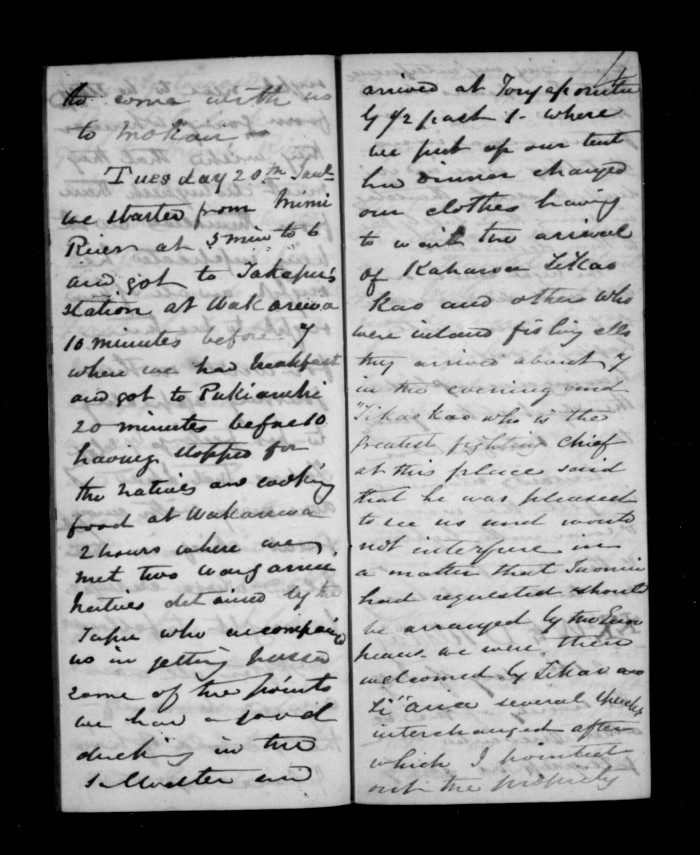 to come with us
to Mokau
Tuesday 20th
we started from Mimi
River at 5 min to 6
and got to Takapu's
station at Wakarewa
10 minutes before 7
where we had breakfast
and got to Pukiaruhi
20 minutes before 10
having stopped for
the natives and cooking
food at Wakarewa
2 hours where we
met two
natives detained by the
Tapu who accompained
us in getting passed
some of the points
we had a good
ducking in the
Saltwater and
arrived at
by 1/2 past 1 - where
we put up our tent
had dinner changed
our clothes having
to wait the arrival
of Kaharoa Tikao
Kao and others who
were inland fishing ells
they arrived about 7
in the evening and
Tikaokao who is the
greatest fighting Chief
at this place said
that he was pleased
to see us and would
not interfere in
a matter that
had requested should
be arranged by the
we were then
welcomed by Tikao and
several speeches
interchanged after
which I pointed
out the propriety